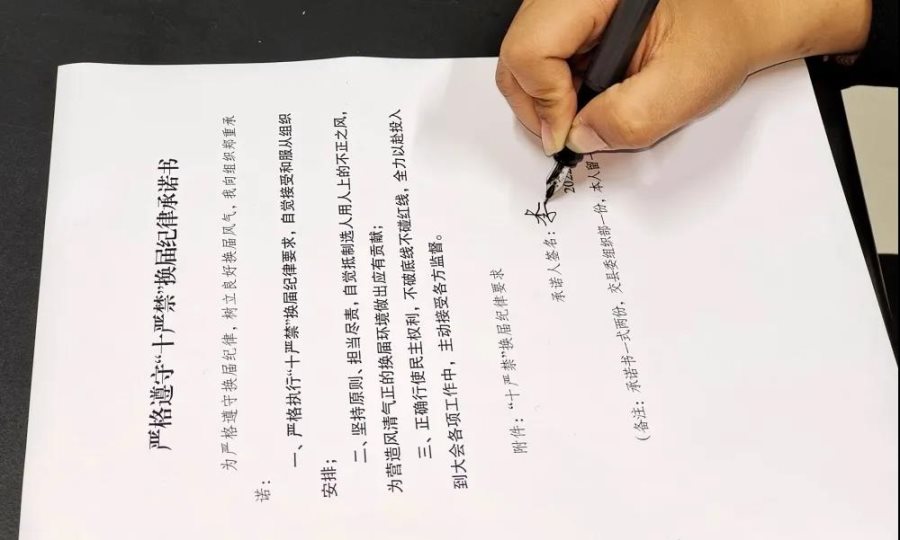 严格遵守“十严禁”换届纪律承诺书
为严格遵守换届纪律，树立良好换届风气，我向组织郑重承
诺：
一、严格执行“十严禁”换届纪律要求，自觉接受和服从组织
安排；
二、坚持原则、担当尽责，自觉抵制选人用人上的不正之风，
为营造风清气正的换届环境做出应有贡献；
三、正确行使民主权利，不破底线不碰红线，全力以赴投入
到大会各项工作中，主动接受各方监督。
附件：“十严禁”换届纪律要求
承诺人签名：李
202
（备注：承诺书一式两份，交县委组织部一份，本人留一